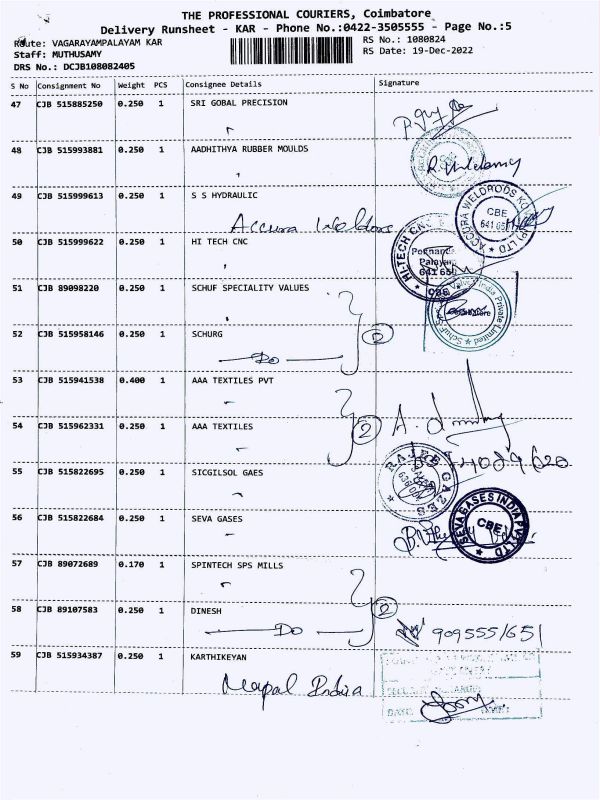 THE PROFESSIONAL COURIERS, Coimbatore
Delivery Runsheet - KAR - Phone No.:0422-3505555 - Page No.:5
Route: VAGARAYAMPALAYAM KAR
RS No.: 1080824
Staff: MUTHUSAMY
RS Date: 19-Dec-2022
DRS No.: DCJB108082405
S No Consignment No Weight PCS Consignee Details Signature
47 CJB 515885250 0.250 1 SRI GOBAL PRECISION
48 CJB 515993881 0.250 1 AADHITHYA RUBBER MOULDS
49 CJB 515999613 0.250 1 S S HYDRAULIC
Accura Weldrods
ACCURA WELDRODS
CBE
50 CJB 515999622 0.250 1 HI TECH CNC
HI.TECH CNC
Palayam
CBE
51 CJB 89098220 0.250 1 SCHUF SPECIALITY VALUES
India Private Limited
52 CJB 515958146 0.250 1 SCHURG
Do
53 CJB 515941538 0.400 1 AAA TEXTILES PVT
54 CJB 515962331 0.250 1 AAA TEXTILES
2
55 CJB 515822695 0.250 1 SICGILSOL GAES
GASES
56 CJB 515822684 0.250 1 SEVA GASES
SEVA GASES INDIA PVT LTD
CBE
57 CJB 89072689 0.170 1 SPINTECH SPS MILLS
58 CJB 89107583 0.250 1 DINESH
Do
2
9095551651
59 CJB 515934387 0.250 1 KARTHIKEYAN
Mapal India
DATE